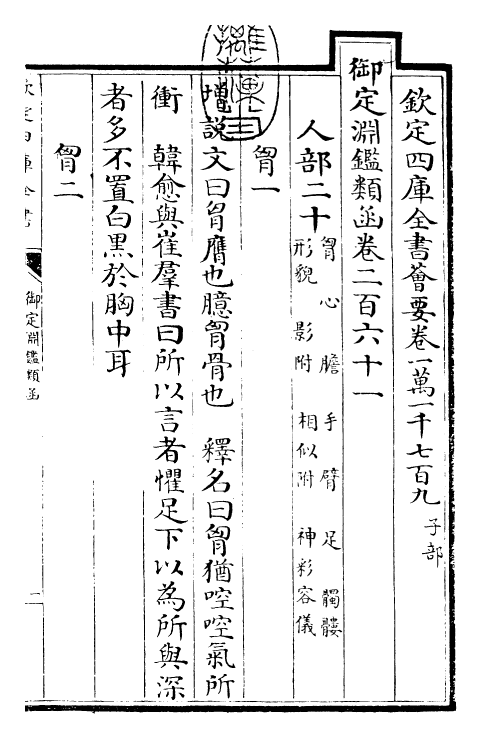 欽定四庫全書薈要卷一萬一千七百九 子部
御定淵鑑類函卷二百六十一
人部二十
胷 心 膽 手 臂 足 髑髏
形貌 影附 相似附 神彩容儀
胷一
增說文曰胷膺也臆胷骨也 釋名曰胷猶啌啌氣所
衝 韓愈與崔羣書曰所以言者懼足下以為所與深
者多不置白黑於胸中耳
胷二
欽定四庫全書
御定淵鑑類函